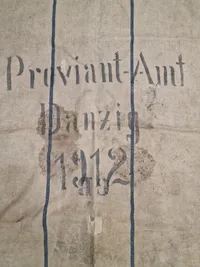 Proviant-Amt
Danzig
1912